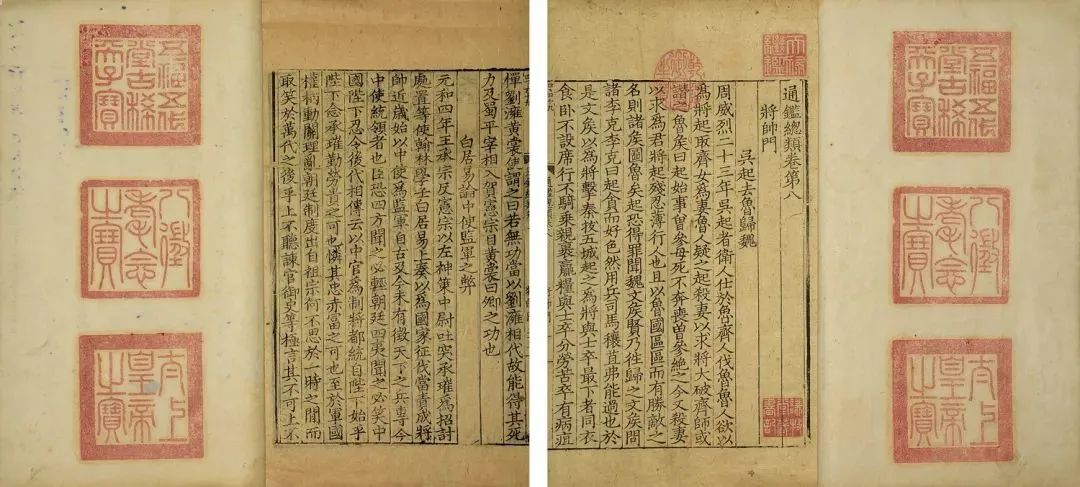 五福五代
堂古稀天
子寶
八徵
耄念
之寶
太上
皇帝
之寶
天祿
繼鑑
通鑑總類卷第八
將帥門
吳起去魯歸魏
周威烈二十三年吳起者衛人仕於魯齊人伐魯魯人欲以
爲將起取齊女爲妻魯人疑之起殺妻以求將大破齊師或
譖之魯矦曰起始事曾參母死不奔喪曾參絶之今又殺妻
以求爲君將起殘忍薄行人也且以魯國區區而有勝敵之
名則諸矦圖魯矣起恐得罪聞魏文矦賢乃往歸之文矦問
諸李克李克曰起貪而好色然用兵司馬穰苴弗能過也於
是文矦以爲將擊秦拔五城起之爲將與士卒最下者同衣
食臥不設席行不騎乘親裹贏糧與士卒分勞苦卒有病疽
憚劉澭黃裳使謂之曰若無功當以劉澭相代故能得其死
力及蜀平宰相入賀憲宗目黃裳曰卿之功也
白居易論中使監軍之弊
元和四年王承宗反憲宗以左神策中尉吐突承璀爲招討
處置等使翰林學士白居易上奏以爲國家征伐當責成將
帥近歲始以中使爲監軍自古及今未有徵天下之兵專令
中使統領者也臣恐四方聞之必輕朝廷四夷聞之必笑中
國陛下忍令後代相傳云以中官爲制將都統自陛下始乎
陛下念承璀勤勞貴之可也憐其忠赤富之可也至於軍國
權柄動關理亂朝廷制度出自祖宗何不思於一時之間而
取笑於萬代之後乎上不聽諫官御史等極言其不可上不
五福五代
堂古稀天
子寶
八徵
耄念
之寶
太上
皇帝
之寶